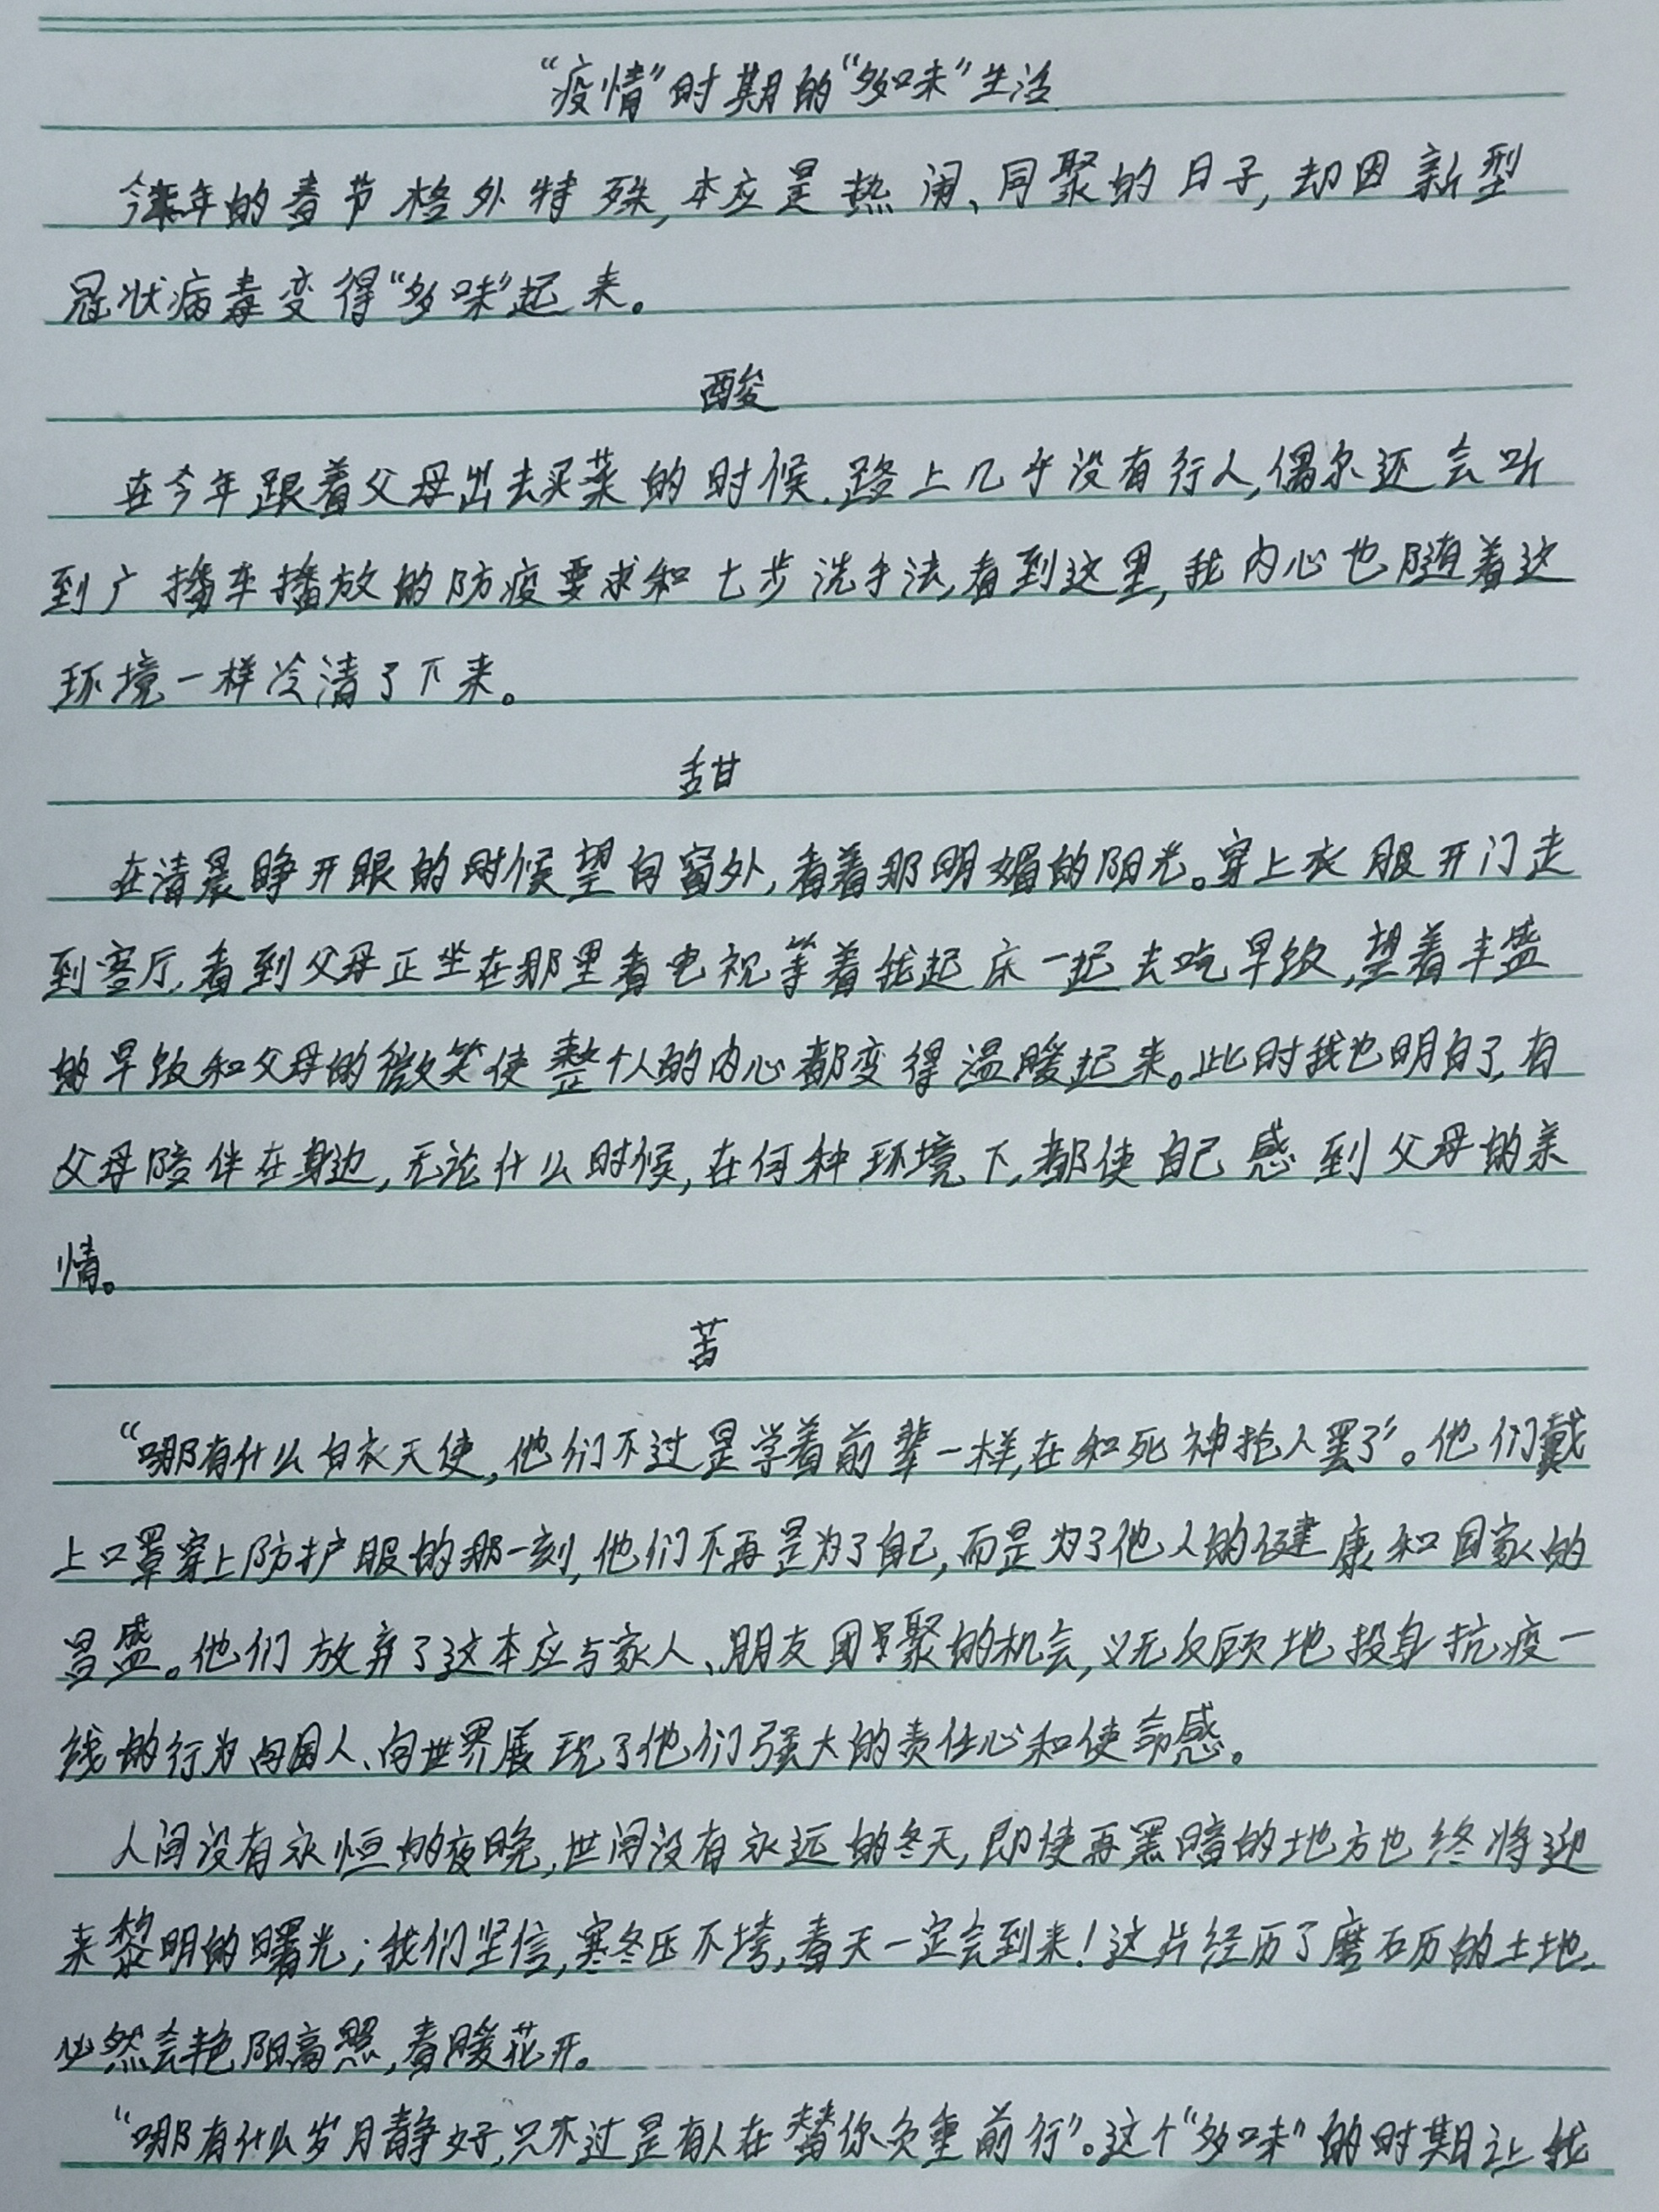 “疫情”时期的“多味”生活
今年的春节格外特殊,本应是热闹、同聚的日子,却因新型
冠状病毒变得“多味”起来。
酸
在今年跟着父母出去买菜的时候,路上几乎没有行人,偶尔还会听
到广播车播放的防疫要求和七步洗手法,看到这里,我内心也随着这
环境一样冷清了下来。
甜
在清晨睁开眼的时候望向窗外,看着那明媚的阳光。穿上衣服开门走
到客厅,看到父母正坐在那里看电视等着我起床一起去吃早饭,望着丰盛
的早饭和父母的微笑使整个人的内心都变得温暖起来。此时我也明白了,有
父母陪伴在身边,无论什么时候,在何种环境下,都使自己感到父母的亲
情。
苦
“哪有什么白衣天使,他们不过是学着前辈一样,在和死神抢人罢了”。他们戴
上口罩穿上防护服的那一刻,他们不再是为了自己,而是为了他人的健康和国家的
昌盛。他们放弃了这本应与家人、朋友团聚的机会,义无反顾地投身抗疫一
线的行为向国人、向世界展现了他们强大的责任心和使命感。
人间没有永恒的夜晚,世间没有永远的冬天,即使再黑暗的地方也终将迎
来黎明的曙光;我们坚信,寒冬压不垮,春天一定会到来!这片经历了磨砺的土地,
必然会艳阳高照,春暖花开。
“哪有什么岁月静好,只不过是有人在替你负重前行”。这个“多味”的时期让我